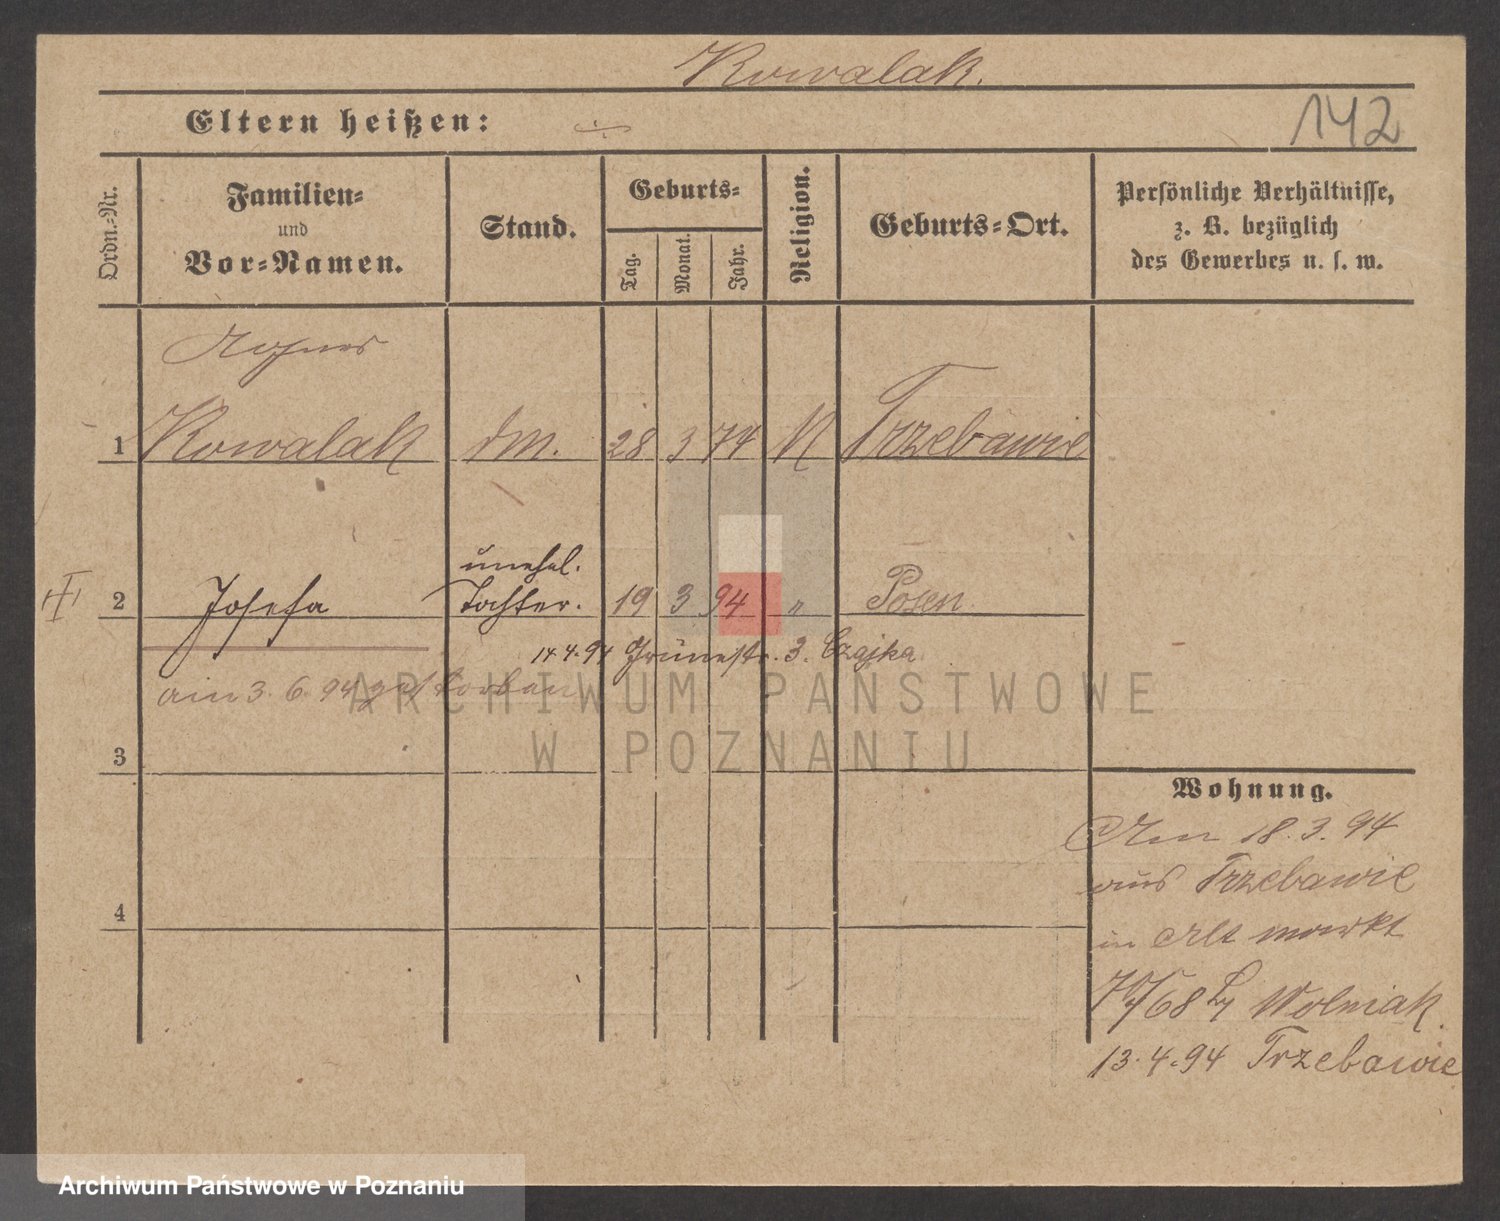 Kowalak.
Eltern heißen: ÷
142
Ordn.-Nr.
Familien-
und
Vor-Namen.
Stand.
Geburts-
Tag.
Monat.
Jahr.
Religion.
Geburts-Ort.
Persönliche Verhältnisse,
z. B. bezüglich
des Gewerbes u. s. w.
Agnes
1 Kowalak dM. 28 3 74 K Trzebawie
unehel.
2 Josefa Tochter. 19 3 94 " Posen
14.4.94 Grünestr. 3. Czajka
am 3. 6. 94 gestorben
3
4
Wohnung.
Am 18. 3. 94
aus Trzebawie
in Alt markt
/68 Wolniak.
13. 4. 94 Trzebawie
ARCHIWUM PAŃSTWOWE
W POZNANIU
Archiwum Państwowe w Poznaniu